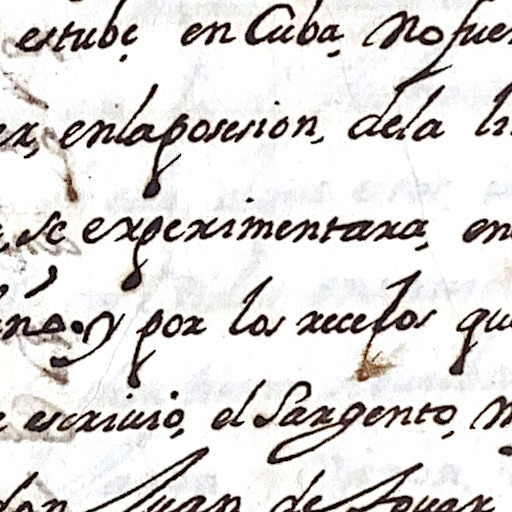 estube en Cuba, No fue
en la posesion, de la li
se experimentara, en
y por los recelos qu
escriuio, el Sargento, M
don Juan de Touar